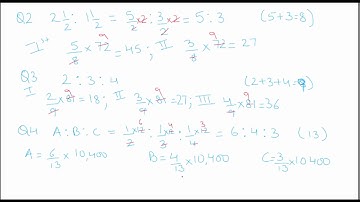 Q2 2 1/2 : 1 1/2 = 5/2 × 2 : 3/2 × 2 = 5 : 3 (5+3=8)
I 5/8 × 72 9 = 45 ; II 3/8 × 72 9 = 27
Q3 2 : 3 : 4 (2+3+4=9)
I 2/9 × 81 9 = 18 ; II 3/9 × 81 9 = 27 ; III 4/9 × 81 9 = 36
Q4 A : B : C = 1/2 × 12 6 : 1/3 × 12 4 : 1/4 × 12 3 = 6 : 4 : 3 (13)
A = 6/13 × 10,400 B = 4/13 × 10,400 C = 3/13 × 10 400